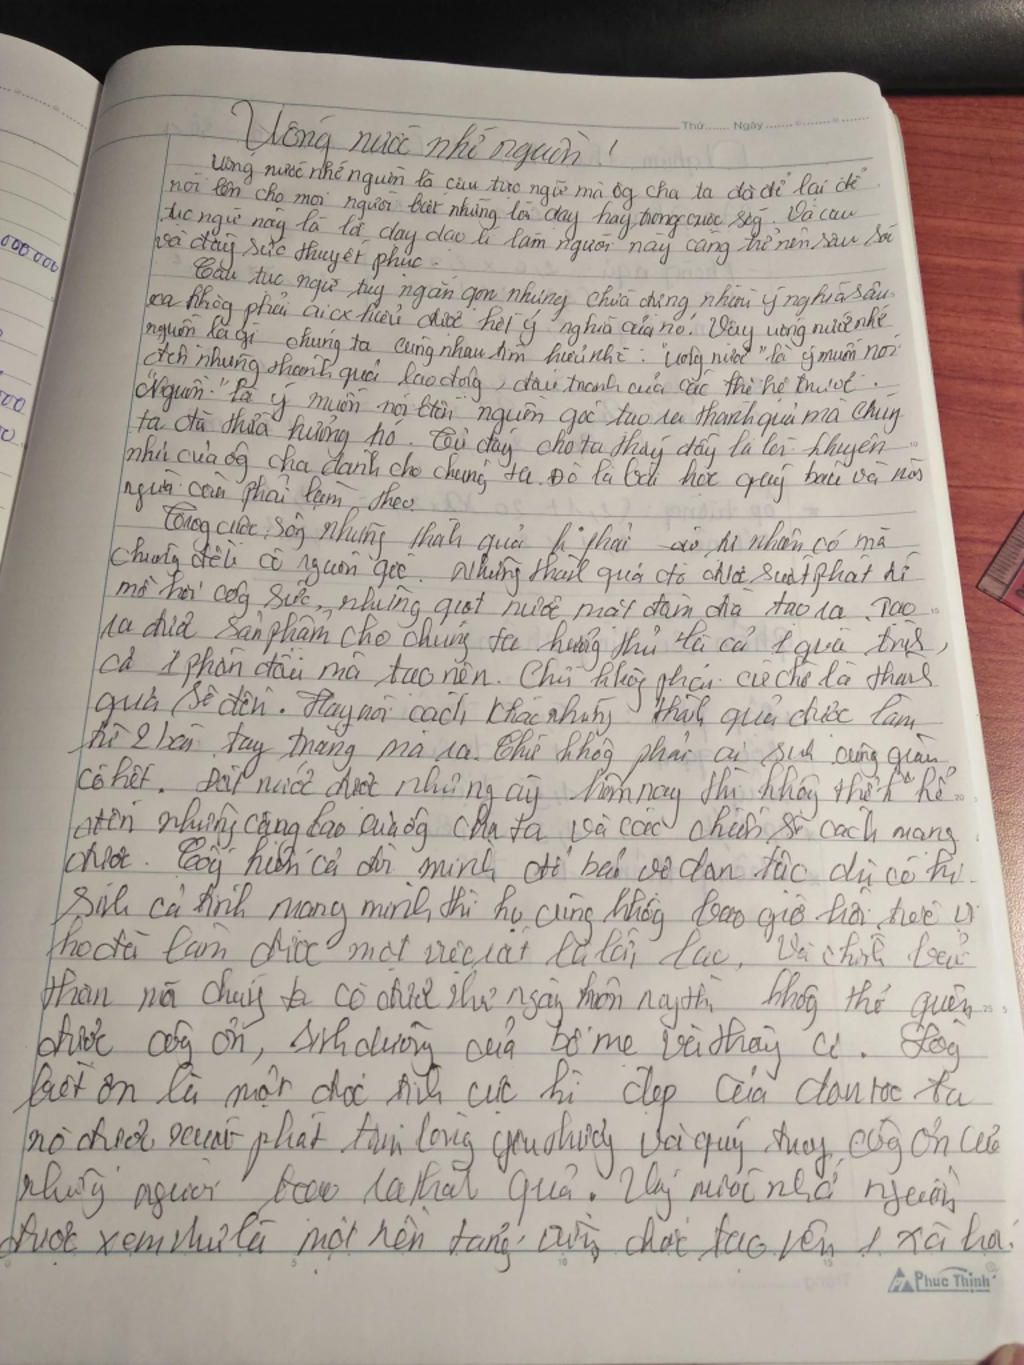 Thứ...... Ngày
Uống nước nhớ nguồn!
Uống nước nhớ nguồn là câu tục ngữ mà ôg cha ta đã để lại để
nói lên cho mọi người biết những lời dạy hay trong cuộc sốg. Và câu
tục ngữ này là lời dạy đạo lí làm người này càng trở nên sâu sắc
và đầy sức thuyết phục.
Câu tục ngữ tuy ngắn gọn nhưng chứa đựng nhiều ý nghĩa sâu
xa khôg phải ai cx hiểu được hết ý nghĩa của nó. Vậy uống nước nhớ
nguồn là gì chúng ta cùng nhau tìm hiểu nhé: "uống nước" là ý muốn nói
đến những thành quả lao động, đấu tranh của các thế hệ trước.
"Nguồn" là ý muốn nói đến nguồn gốc tạo ra thành quả mà chúng
ta đã thừa hưởng nó. Từ đấy cho ta thấy đây là lời khuyên
nhủ của ôg cha dành cho chúng ta. Đó là bài học quý báu và mỗi
người cần phải làm theo
Trog cuộc sốg những thành quả k phải tự nhiên có mà
chúng đều có nguồn gốc. Những thành quả đó được xuất phát từ
mồ hôi côg sức, những giọt nước mắt đã tạo ra. Tạo
ra được sản phẩm cho chúng ta hưởng thụ là cả 1 quá trình,
cả 1 phấn đấu mà tạo nên. Chứ khôg phải cứ chờ là thành
quả sẽ đến. Hay nói cách khác những thành quả được làm
từ 2 bàn tay trắng mà ra. Chứ khôg phải ai sinh cũng giàu
có hết. Đất nước được những ngày hôm nay thì không thể k kể
đến những công lao của ôg cha ta và các chiến sĩ cách mạng
được. Cốg hiến cả đời mình để bảo vệ dân tộc dù có hi
sinh cả tính mạng mình thì họ cũng khôg bao giờ hối tiếc vì
họ đã làm được một việc rất là lớn lao. Và chính bản
thân mà chúng ta có được như ngày hôm nay thì khôg thể quên
được côg ơn, sinh dưỡng của bố mẹ và thầy cô. Lòg
biết ơn là một đức tính cực kì đẹp của dân tộc ta
nó được xuất phát từ lòng yêu thương và quý trọng côg ơn của
những người tạo ra thành quả. Uống nước nhớ nguồn
được xem như là một nền tảng vững chắc tạo nên 1 xã hội
Phuc Thinh